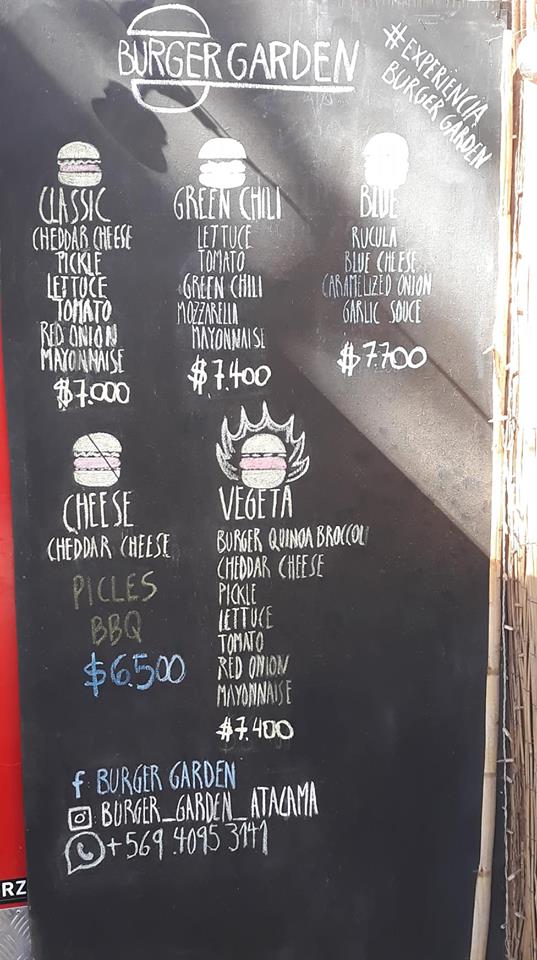 BURGER GARDEN
#EXPERIENCIA
BURGER GARDEN
CLASSIC
CHEDDAR CHEESE
PICKLE
LETTUCE
TOMATO
RED ONION
MAYONNAISE
$7.000
GREEN CHILI
LETTUCE
TOMATO
GREEN CHILI
MOZZARELLA
MAYONNAISE
$7.400
BLUE
RUCULA
BLUE CHEESE
CARAMELIZED ONION
GARLIC SOUCE
$7.700
CHEESE
CHEDDAR CHEESE
PICLES
BBQ
$6.500
VEGETA
BURGER QUINOA BROCCOLI
CHEDDAR CHEESE
PICKLE
LETTUCE
TOMATO
RED ONION
MAYONNAISE
$7.400
f BURGER GARDEN
BURGER_GARDEN_ATACAMA
+569 4095 3141
RZ